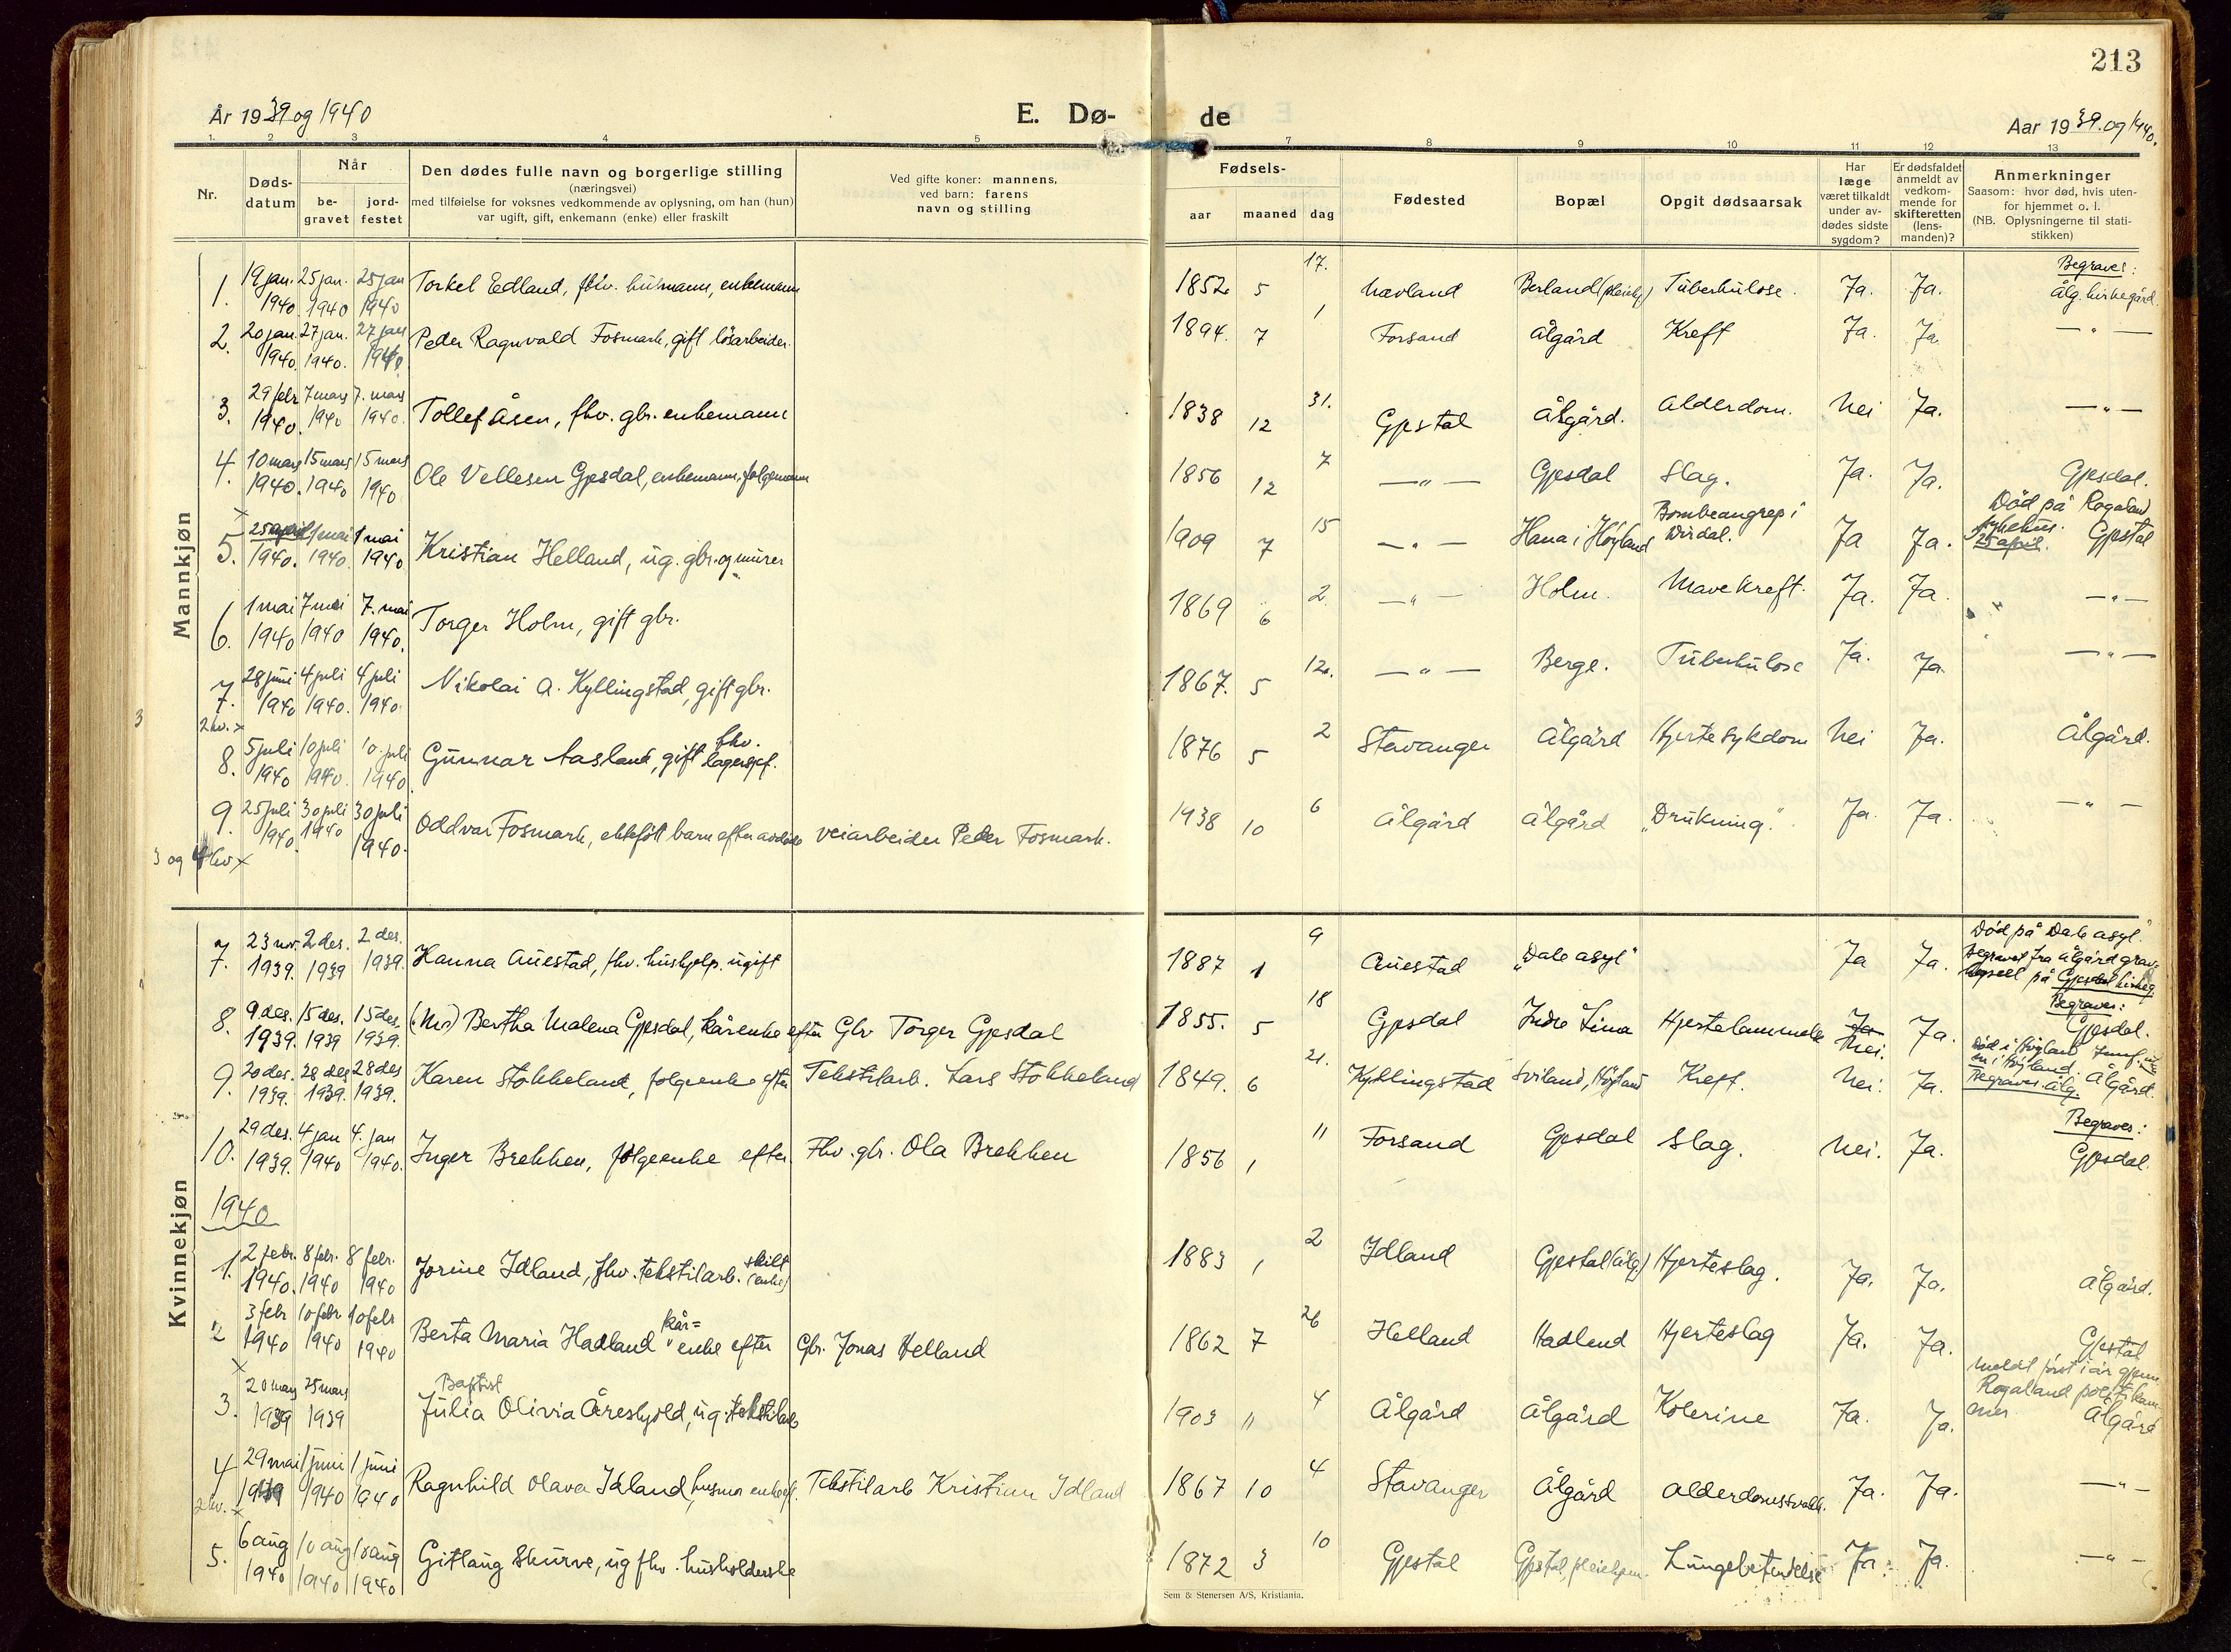 213
År 1939 og 1940
E. Dø-
de
Aar 1939. og 1940.
1 2 3 4 5 7 8 9 10 11 12 13
Nr.
Døds-
datum
Når
be-
gravet
jord-
festet
Den dødes fulle navn og borgerlige stilling
(næringsvei)
med tilføielse for voksnes vedkommende av oplysning, om han (hun)
var ugift, gift, enkemann (enke) eller fraskilt
Ved gifte koner: mannens,
ved barn: farens
navn og stilling
Fødsels-
aar maaned dag
Fødested
Bopæl
Opgit dødsaarsak
Har
læge
været tilkaldt
under av-
dødes sidste
sygdom?
Er dødsfaldet
anmeldt av
vedkom-
mende for
skifteretten
(lens-
manden)?
Anmerkninger
Saasom: hvor død, hvis uten-
for hjemmet o. l.
(NB. Oplysningerne til stati-
stikken)
Mannkjøn
1. 19 jan. 1940. 25 jan. 1940 25 jan 1940 Torkel Edland, fhv. husmann, enkemann 1852. 5 17. Berland Tuberkulose. Ja. Ja. Begraves: Ålg. kirkegård.
2. 20 jan. 1940. 27 jan. 1940. 27 jan 1940. Peder Ragnvald Fosmark, gift løsarbeider. 1894. 7 1 Forsand Ålgård Kreft Ja. Ja. — " —
3. 29 febr 1940. 7 mars 1940 7. mars 1940. Tollef Åsen, fhv. gbr. enkemann 1838 12 31. Gjestal Ålgård. Alderdom. Nei Ja. — " —
4. 10 mars 1940. 15 mars 1940 15 mars 1940. Ole Vellesen Gjesdal, enkemann, følgemann 1856 12 7 — " — Gjesdal Slag. Ja. Ja. Gjesdal.
5. 25 april 1940. 1 mai 1940. 1 mai 1940 Kristian Helland, ug. gbr. og murer 1909 7 15 — " — Hana i Høyland Bombeangrep i Dirdal. Ja Ja. Død på Rogaland sykehus. 25 april. Gjestal
6. 1 mai 1940 7 mai 1940 7. mai 1940. Torger Holm, gift gbr. 1869 6 2. — " — Holm. Mavekreft. Ja. Ja. — " —
7. 28 juni 1940 4 juli 1940. 4 juli 1940. Nikolai A. Kyllingstad, gift gbr. 1867. 5 12. — " — Berge. Tuberkulose Ja. Ja. — " —
2 kv. x
8. 5 juli 1940 10 juli 1940. 10. juli 1940 Gunnar Aasland, gift fhv. lagersjef. 1876 5 2 Stavanger Ålgård Hjertesykdom Nei Ja. Ålgård.
9. 25 juli 1940. 30 juli 1940 30 juli 1940. Oddvar Fosmark, ektefött barn efter avdöde veiarbeider Peder Fosmark. 1938 10 6 Ålgård Ålgård "Drukning". Ja. Ja. — " —
3 og 4 kv x
Kvinnekjøn
7. 23 nov. 1939. 2 des. 1939 2 des. 1939. Hanna Auestad, fhv. hushjelp. ugift 1887 1 9 Auestad "Dale asyl" Ja Ja. Død på "Dale asyl". Begravet fra Ålgård gravkapell på Gjesdal kirkeg.
8. 9. des. 1939. 15 des. 1939 15 des. 1939. Bertha Malena Gjesdal, kårenke efter Gbr Torger Gjesdal 1855. 5 18 Gjesdal Indre Lima Hjertelammelse Ja Nei. Ja. Begraves: Gjesdal.
9. 20 des. 1939. 28 des 1939. 28 des 1939. Karen Stokkeland, følgeenke efter Tekstilarb. Lars Stokkeland 1849. 6 21. Kyllingstad Sviland, Høyland Kreft. Nei. Ja. Død i Høyland. Begraves Ålg. Ålgård.
10. 29 des. 1939. 4 jan 1940 4. jan 1940. Inger Brekken, følgeenke efter Fhv. gbr. Ola Brekken 1856 1 11 Forsand Gjesdal Slag. Nei. Ja. Begraves: Gjesdal.
1940
1. 2 febr. 1940. 8 febr. 1940 8 febr. 1940 Jorine Idland, fhv. tekstilarb. skilt (enke) 1883 1 2 Idland Gjestal (Ålg.) Hjerteslag. Ja. Ja. Ålgård.
2 3 febr 1940 10 febr 1940 10 febr 1940 Berta Maria Hadland kår= enke efter Gbr. Jonas Helland 1862 7 26 Helland Hadland Hjerteslag Ja. Ja. Gjestal
3. 20 mars 1939 25 mars 1939 Baptist Julia Olivia Åreskjold, ug. tekstilarb 1903 11 4 Ålgård Ålgård Kolerine Ja. Ja. Meldt først i år gjenn. Rogaland politikammer Ålgård
4 29 mai 1 juni 1940 1 juni 1940 Ragnhild Olava Idland, husmor enke eft. Tekstilarb Kristian Idland 1867 10 4 Stavanger Ålgård Alderdomssvakh. Ja. Ja. — " —
2 kv. x
5. 6 aug 1940 10 aug 1940 10 aug 1940 Gitlaug Skurve, ug fhv. husholderske 1872 3 10 Gjestal Gjestal, pleiehjem. Lungebetendelse Ja. Ja. — " —
Sem & Stenersen A/S, Kristiania.